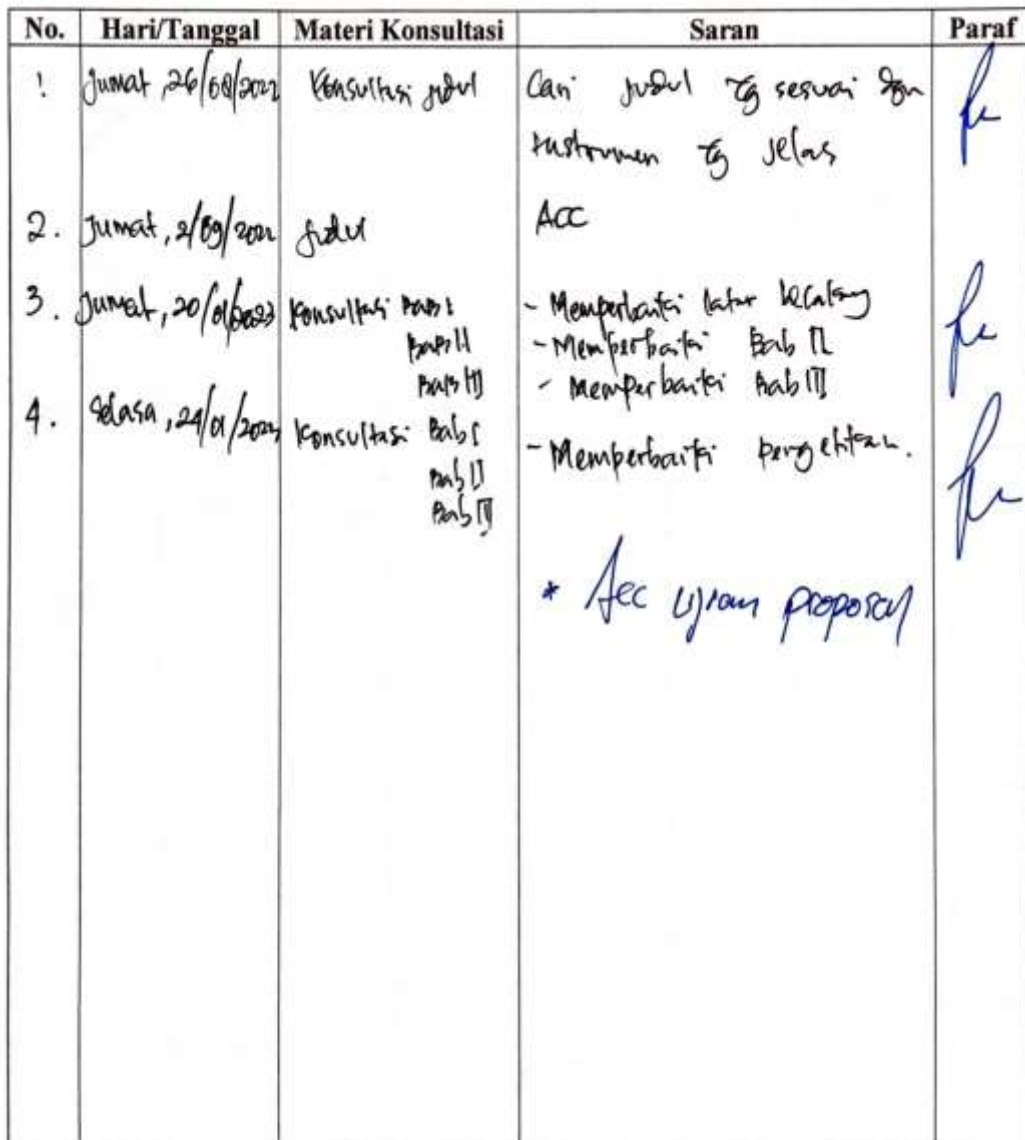 No. Hari/Tanggal Materi Konsultasi Saran Paraf
1 Jumat, 26/08/2022 Konsultasi judul Cari judul yg sesuai dgn
instrumen yg jelas
2. Jumat, 2/09/2022 judul ACC
3. Jumat, 20/01/2023 Konsultasi Bab I - Memperbaiki latar belakang
Bab II - Memperbaiki Bab II
Bab III - Memperbaiki Bab III
4. Selasa, 24/01/2023 Konsultasi Bab I - Memperbaiki pengetikan.
Bab II
Bab III
* Acc ujian proposal